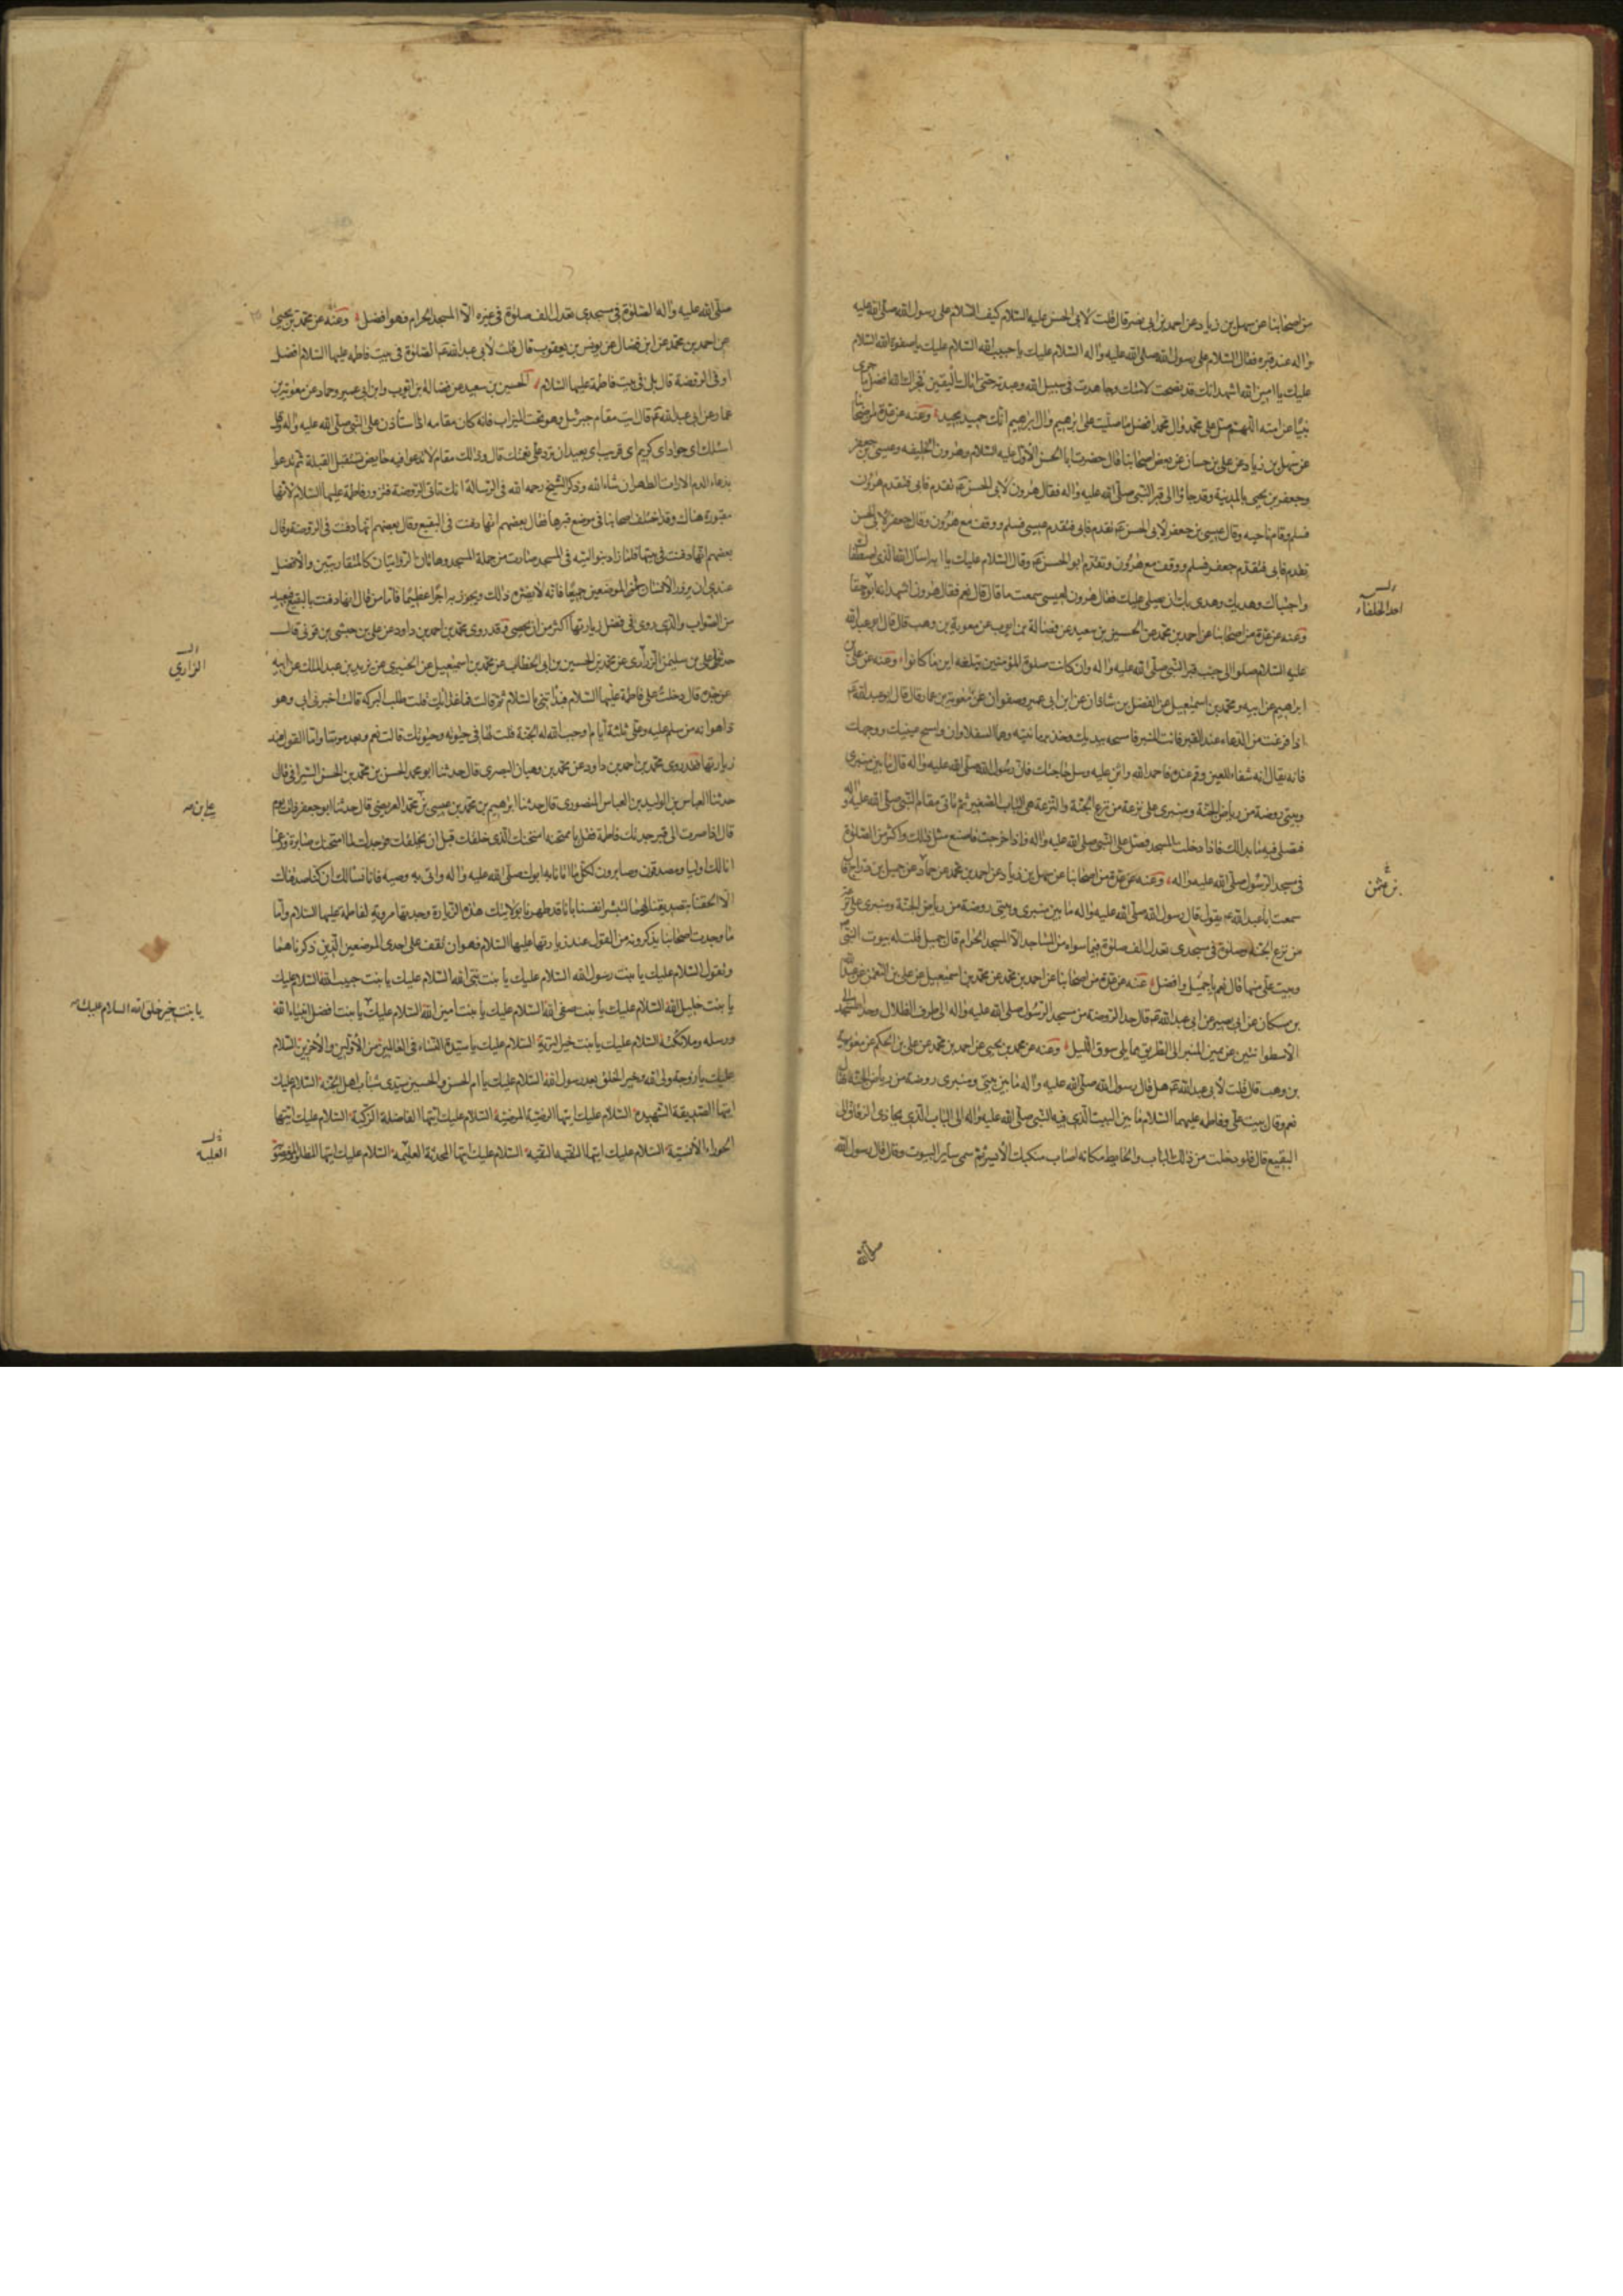 من اصحابنا عن سهل بن زياد عن احمد بن ابى نصر قال قلت لابى الحسن عليه السلام كيف السلام على رسول الله صلى الله عليه
واله عند قبره فقال السلام على رسول الله صلى الله عليه واله السلام عليك يا حبيب الله السلام عليك يا صفوة الله السلام
عليك يا امين الله اشهد انك قد نصحت لامتك وجاهدت فى سبيل الله وعبدته حتى اتاك اليقين فجزاك الله افضل ما جزى
نبيا عن امته اللهم صل على محمد وال محمد افضل ما صليت على ابرهيم وال ابرهيم انك حميد مجيد وعنه عن عدة من اصحابنا
عن سهل بن زياد عن على بن حسان عن بعض اصحابنا قال حضرت ابا الحسن الاول عليه السلام وهرون الخليفه وعيسى بن جعفر
وجعفر بن يحيى بالمدينة وقد جاؤا الى قبر النبى صلى الله عليه واله فقال هرون لابى الحسن تقدم فابى فتقدم هرون
فسلم وقام ناحيه وقال عيسى بن جعفر لابى الحسن تقدم فابى فتقدم عيسى فسلم ووقف مع هرون وقال جعفر لابى الحسن
تقدم فابى فتقدم جعفر فسلم ووقف مع هرون وتقدم ابو الحسن وقال السلام عليك يا ابه اسال الله الذى اصطفاك
واجتباك وهداك وهدى بك ان يصلى عليك فقال هرون لعيسى سمعت ما قال قال نعم فقال هرون اشهد انه ابوه حقا
احد الخلفاء
وعنه عن عدة من اصحابنا عن احمد بن محمد عن الحسين بن سعيد عن فضالة بن ايوب عن معوية بن وهب قال قال ابو عبد الله
عليه السلام صلوا الى جنب قبر النبى صلى الله عليه واله وان كانت صلوة المؤمنين تبلغه اين ما كانوا وعنه عن على بن
ابراهيم عن ابيه ومحمد بن اسمعيل عن الفضل بن شاذان عن ابن ابى عمير وصفوان عن معوية بن عمار قال قال ابو عبد الله
اذا فرغت من الدعاء عند القبر فائت المنبر فامسحه بيدك وخذ برمانتيه وهما السفلاوان وامسح عينيك ووجهك
فانه يقال انه شفاء للعين وقم عنده فاحمد الله واثن عليه وسل حاجتك فان رسول الله صلى الله عليه واله قال ما بين منبرى
وبيتى روضة من رياض الجنة ومنبرى على ترعة من ترع الجنة والترعة هى الباب الصغير ثم تاتى مقام النبى صلى الله عليه واله
فتصلى فيه ما بدا لك فاذا دخلت المسجد فصل على النبى صلى الله عليه واله واذا خرجت فاصنع مثل ذلك واكثر من الصلوة
فى مسجد الرسول صلى الله عليه واله وعنه عن عدة من اصحابنا عن سهل بن زياد عن احمد بن محمد عن حماد عن جميل بن دراج قال
سمعت ابا عبد الله يقول قال رسول الله صلى الله عليه واله ما بين منبرى وبيتى روضة من رياض الجنة ومنبرى على ترعة
من ترع الجنة وصلوة فى مسجدى تعدل الف صلوة فيما سواه من المساجد الا المسجد الحرام قال جميل قلت له بيوت النبى
وبيت على منها قال نعم يا جميل وافضل عنه عن عدة من اصحابنا عن احمد بن محمد عن محمد بن اسمعيل عن على بن النعمن عن عبد الله
بن مسكان عن ابى بصير عن ابى عبد الله قال حد الروضة من مسجد الرسول صلى الله عليه واله الى طرف الظلال وحد المسجد
الاسطوانتين عن يمين المنبر الى الطريق مما يلى سوق الليل وعنه عن محمد بن يحيى عن احمد بن محمد عن على بن الحكم عن معوية
بن وهب قال قلت لابى عبد الله هل قال رسول الله صلى الله عليه واله ما بين بيتى ومنبرى روضة من رياض الجنة فقال
نعم وقال بيت على وفاطمه عليهما السلام ما بين البيت الذى فيه النبى صلى الله عليه واله الى الباب الذى يحاذى الزقاق الى
البقيع قال فلو دخلت من ذلك الباب والحايط مكانه اصاب منكبك الايسر ثم سمى ساير البيوت وقال قال رسول الله
صلى الله
صلى الله عليه واله الصلوة فى مسجدى تعدل الف صلوة فى غيره الا المسجد الحرام فهو افضل وعنه عن محمد بن يحيى
عن احمد بن محمد عن ابن فضال عن يونس بن يعقوب قال قلت لابى عبد الله الصلوة فى بيت فاطمه عليها السلام افضل
او فى الروضة قال بل فى بيت فاطمة عليها السلام الحسين بن سعيد عن فضالة بن ايوب وابن ابى عمير وحماد عن معوية بن
عمار عن ابى عبد الله قال ايت مقام جبرئيل وهو تحت الميزاب فانه كان مقامه اذا استأذن على النبى صلى الله عليه واله وقل
اسئلك اى جواد اى كريم اى قريب اى بعيد ان ترد على نعمتك قال وذلك مقام لا تدعو فيه حايض تستقبل القبلة ثم تدعو
بدعاء الدم الا رات الطهر ان شاء الله وذكر الشيخ رحمه الله فى الرسالة انك تاتى الروضة فتزور فاطمة عليها السلام لانها
مقبورة هناك وقد اختلف اصحابنا فى موضع قبرها فقال بعضهم انها دفنت فى البقيع وقال بعضهم انها دفنت فى الروضة وقال
بعضهم انها دفنت فى بيتها فلما زاد بنو اميه فى المسجد صارت من جملة المسجد وهاتان الروايتان كالمتقاربتين والافضل
عندى ان يزور الانسان فى الموضعين جميعا فانه لا يضره ذلك ويحوز به اجرا عظيما فاما من قال انها دفنت بالبقيع فبعيد
من الصواب والذى روى فى فضل زيارتها اكثر من ان يحصى وقد روى محمد بن احمد بن داود عن على بن حبشى بن قونى قال
حدثنا على بن سليمن الزرارى عن محمد بن الحسين بن ابى الخطاب عن محمد بن اسمعيل عن الخيبرى عن يزيد بن عبد الملك عن ابيه
الرازى
عن جده قال دخلت على فاطمة عليها السلام فبدأتنى بالسلام ثم قالت ما غدا بك قلت طلب البركه قالت اخبرنى ابى وهو
ذا هو انه من سلم عليه وعلى ثلثة ايام اوجب الله له الجنة قلت لها فى حيوته وحيوتك قالت نعم وبعد موتنا واما القول عند
زيارتها فقد روى محمد بن احمد بن داود عن محمد بن وهبان البصرى قال حدثنا ابو محمد الحسن بن محمد بن الحسن السيرافى قال
حدثنا العباس بن الوليد بن العباس المنصورى قال حدثنا ابرهيم بن محمد بن عيسى بن محمد العريضى قال حدثنا ابو جعفر ذات يوم
على بن
قال اذا صرت الى قبر جدتك فاطمة فقل يا ممتحنة امتحنك الذى خلقك قبل ان يخلقك فوجدك لما امتحنك صابرة وزعمنا
انا لك اوليا ومصدقون وصابرون لكل ما اتانا به ابوك صلى الله عليه واله واتى به وصيه فانا نسالك ان كنا صدقناك
الا الحقتنا بتصديقنا لهما لنبشر انفسنا بانا قد طهرنا بولايتك هذه الزيارة وجدتها مروية لفاطمه عليها السلام واما
ما وجدت اصحابنا يذكرونه من القول عند زيارتها عليها السلام فهو ان تقف على احد الموضعين الذين ذكرناهما
وتقول السلام عليك يا بنت رسول الله السلام عليك يا بنت نبى الله السلام عليك يا بنت حبيب الله السلام عليك
يا بنت خليل الله السلام عليك يا بنت صفى الله السلام عليك يا بنت امين الله السلام عليك يا بنت افضل انبياء الله
يا بنت خير خلق الله السلام عليك
ورسله وملائكته السلام عليك يا بنت خير البرية السلام عليك يا سيدة النساء فى العالمين من الاولين والاخرين السلام
عليك يا زوجة ولى الله وخير الخلق بعد رسول الله السلام عليك يا ام الحسن والحسين سيدى شباب اهل الجنة السلام عليك
ايتها الصديقة الشهيدة السلام عليك ايتها الرضية المرضية السلام عليك ايتها الفاضلة الزكية السلام عليك ايتها
الحوراء الانسية السلام عليك ايتها التقيه النقية السلام عليك ايتها المحدثة العليمة السلام عليك ايتها المظلومة المغصوبة